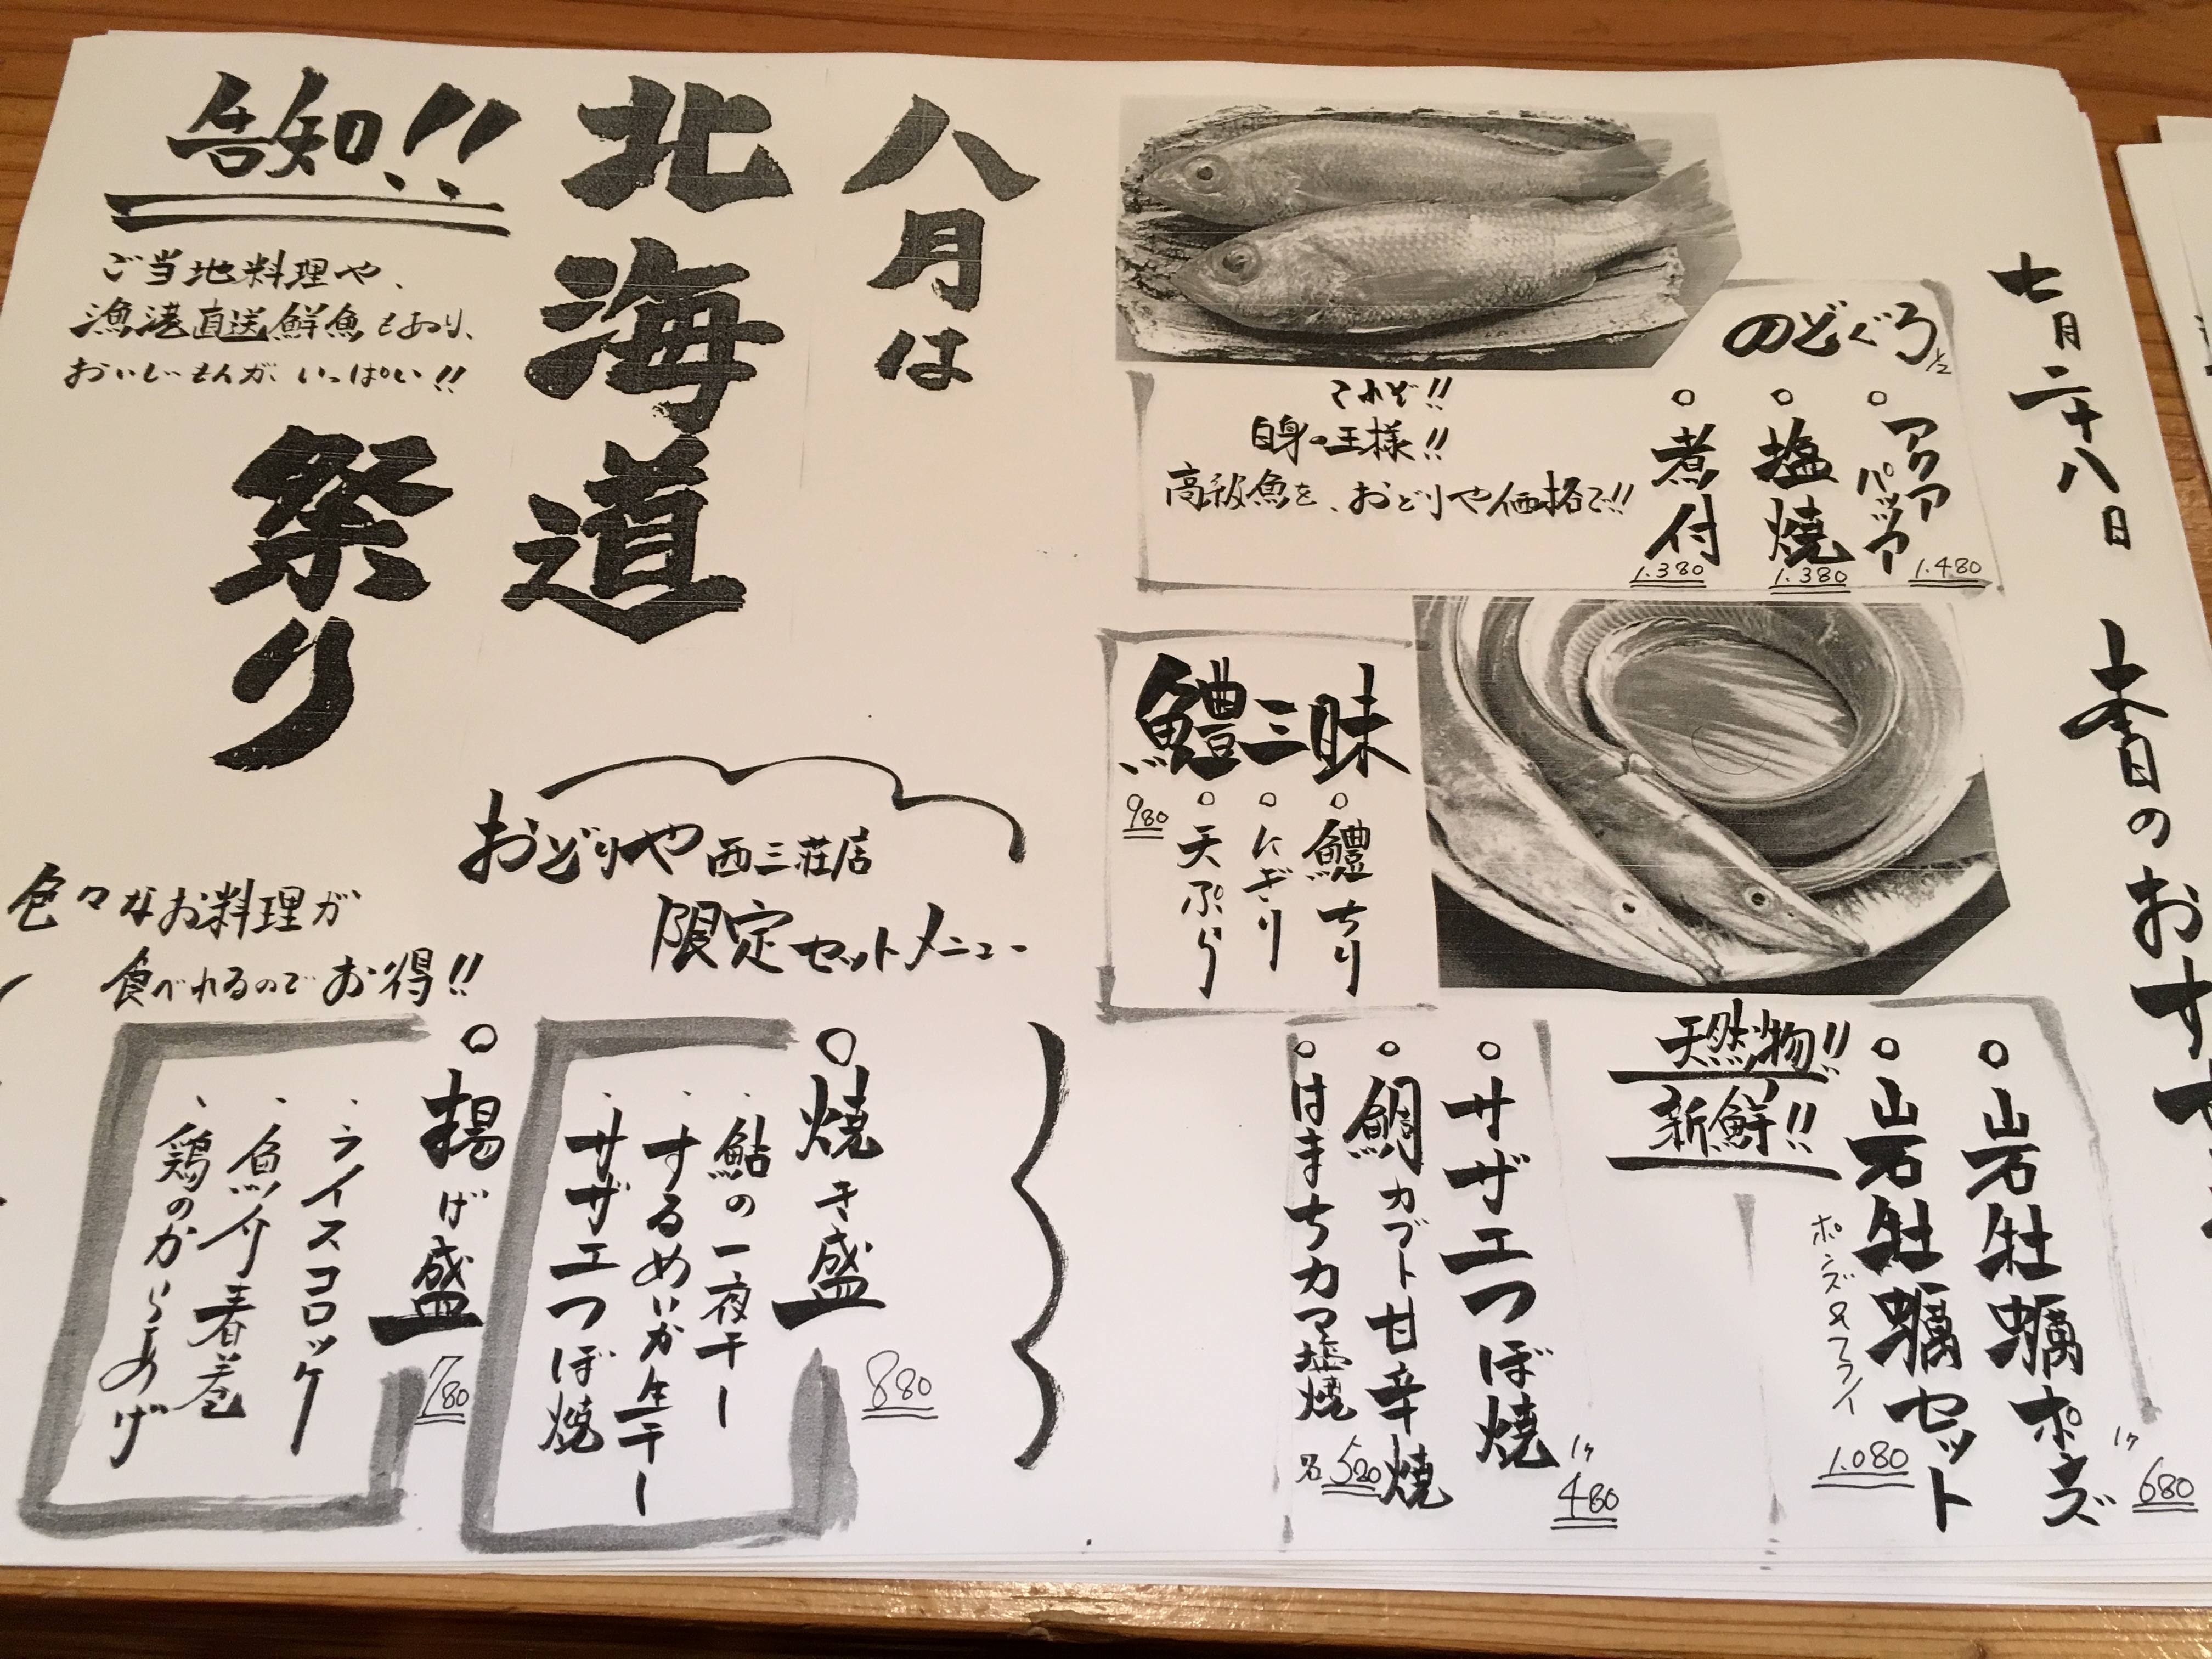 七月二十八日 本日のおす
のどぐろ1/2
○アクアパッツァ
1.480
○塩焼
1.380
○煮付
1.380
これぞ!!
白身の王様!!
高級魚を、おどりや価格で!!
鱧三昧
○鱧ちり
○にぎり
○天ぷら
980
○岩牡蠣ポンズ
1ヶ
680
○岩牡蠣セット
ポンズ&フライ
1.080
天然物!!
新鮮!!
○サザエつぼ焼
1ヶ
480
○鯛カブト甘辛焼
○はまちカマ塩焼
各520
八月は
北海道
祭り
告知!!
ご当地料理や、
漁港直送鮮魚もあり、
おいしいもんが、いっぱい!!
おどりや西三荘店
限定セットメニュー
色々なお料理が
食べれるのでお得!!
○焼き盛
880
、鮎の一夜干し
、するめいか生干し
、サザエつぼ焼
○揚げ盛
780
、ライスコロッケ
、魚介春巻
、鶏のからあげ